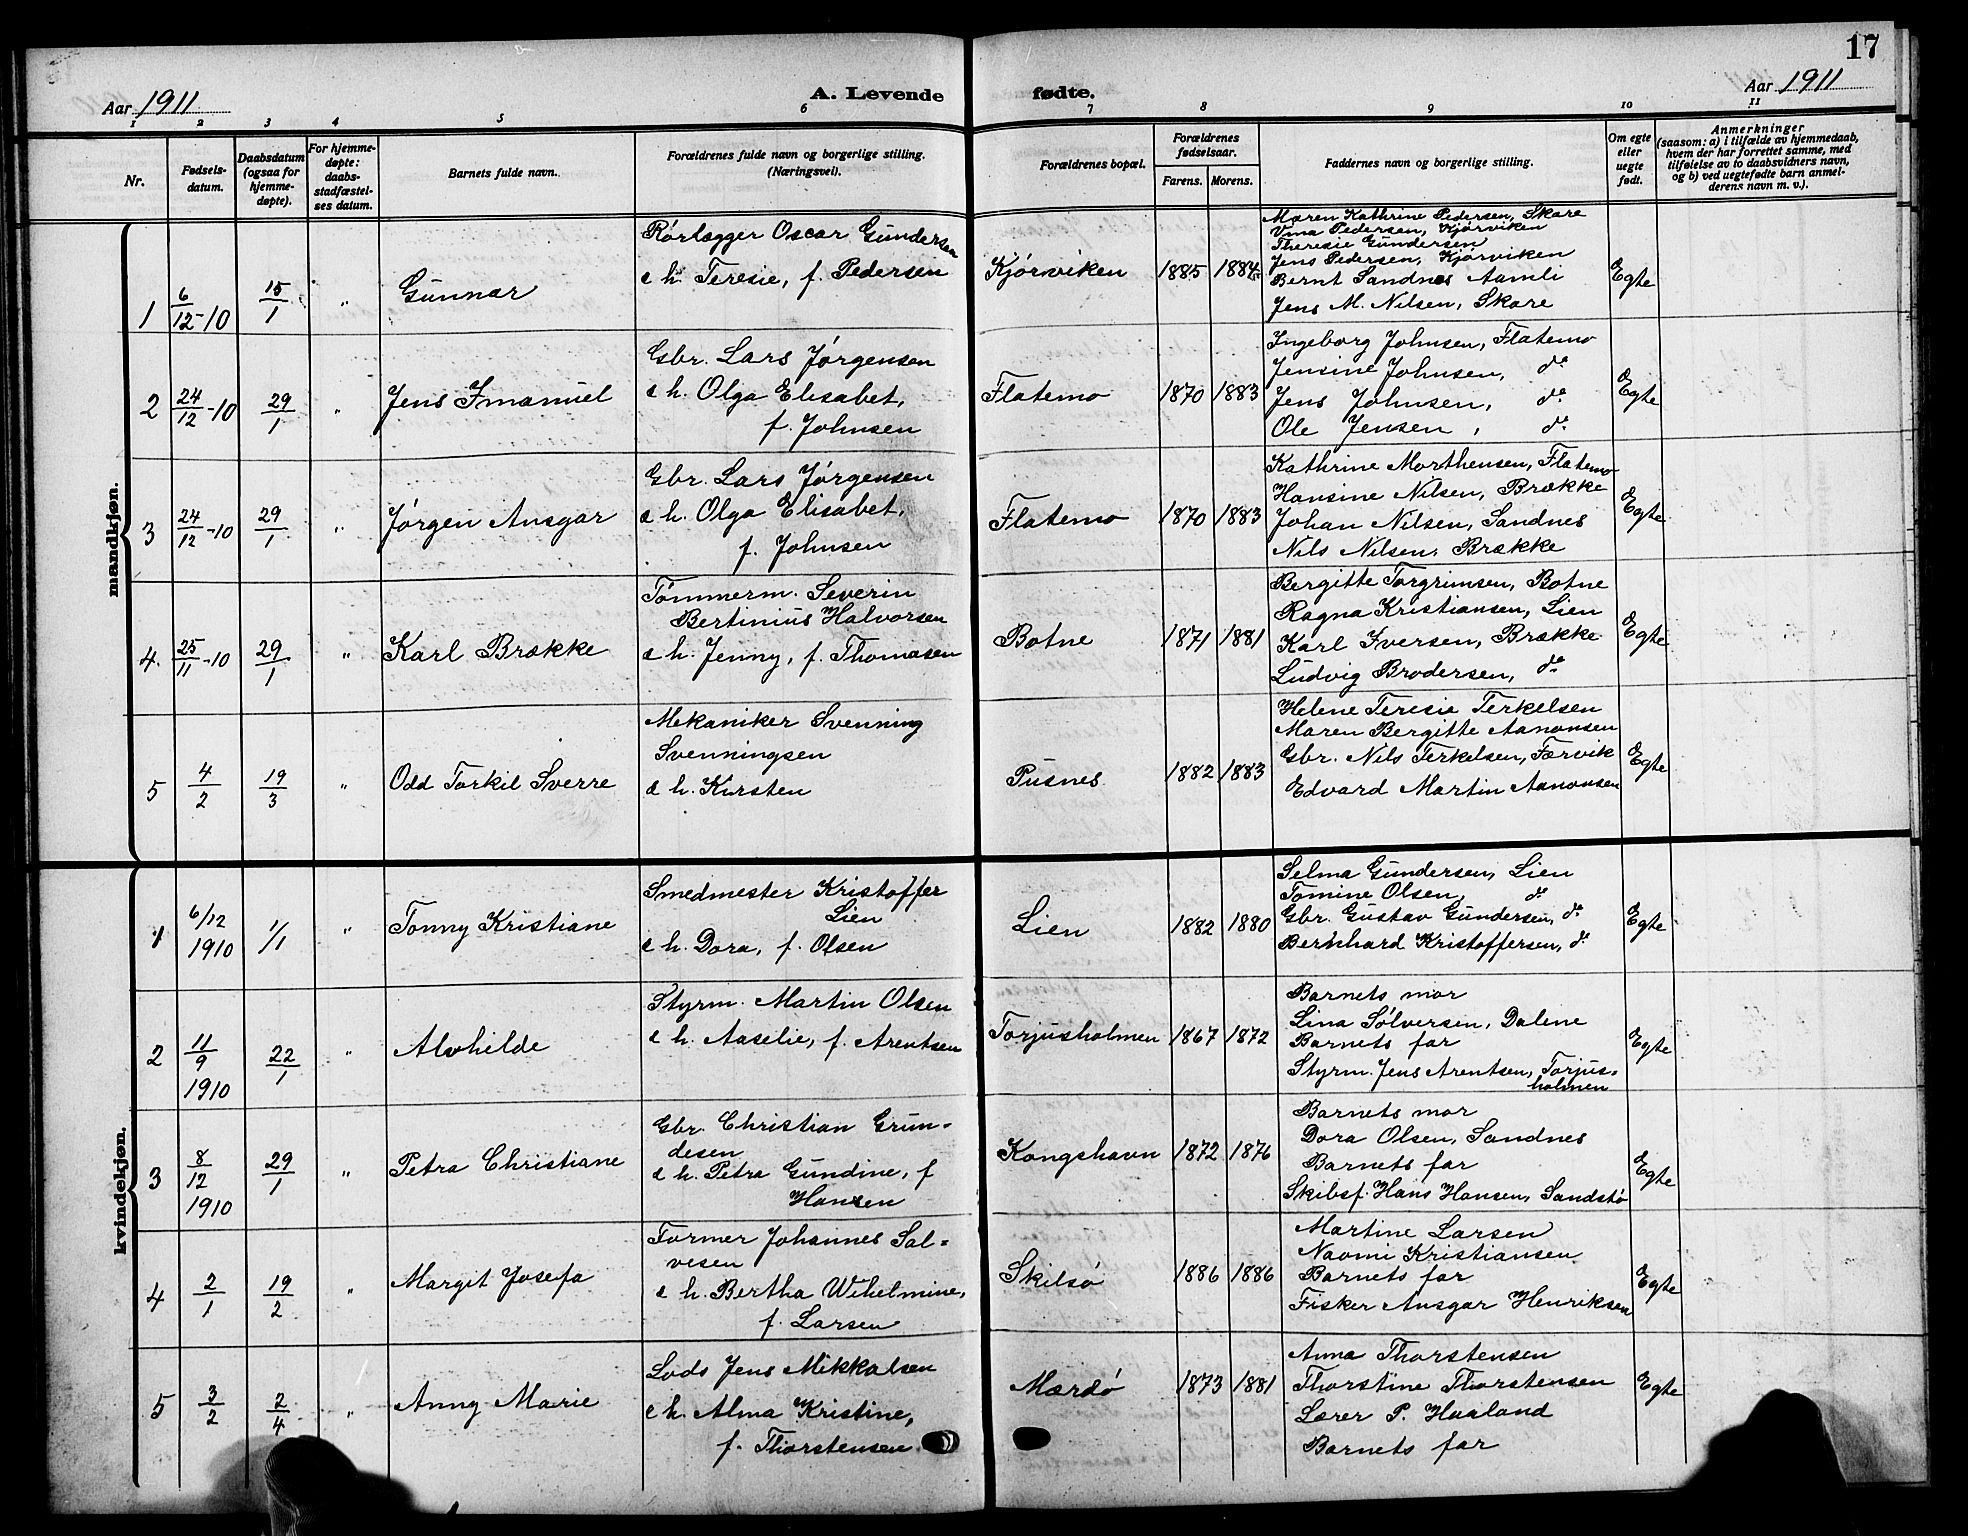 17
Aar 1911
A. Levende fødte.
Aar 1911
1 2 3 4 5 6 7 8 9 10 11
Nr.
Fødsels-
datum.
Daabsdatum
(ogsaa for
hjemme-
døpte).
For hjemme-
døpte:
daabs-
stadfæstel-
ses datum.
Barnets fulde navn.
Forældrenes fulde navn og borgerlige stilling.
(Næringsvei).
Forældrenes bopæl.
Forældrenes
fødselsaar.
Farens. Morens.
Faddernes navn og borgerlige stilling.
Om egte
eller
uegte
født.
Anmerkninger
(saasom: a) i tilfælde av hjemmedaab,
hvem der har forrettet samme, med
tilføielse av to daabsvidners navn,
og b) ved uegtefødte barn anmel-
derens navn m. v.).
mandkjøn.
1 6/12-10 15/1 " Gunnar
Rörlægger Oscar Gundersen
& h. Teresie, f. Pedersen
Kjörviken 1885 1884
Maren Kathrine Pedersen, Skare
Uma Pedersen, Kjörviken
Theresie Gundersen
Jens Pedersen, Kjörviken
Bernt Sandnes Aamli
Jens M. Nilsen, Skare
Egte
2 24/12-10 29/1 " Jens Imanuel
Gbr. Lars Jørgensen
& h. Olga Elisabet,
f. Johnsen
Flatemo 1870 1883
Ingeborg Johnsen, Flatemo
Jensine Johnsen, do
Jens Johnsen, do
Ole Jensen, do
Egte
3 24/12-10 29/1 " Jørgen Ansgar
Gbr. Lars Jørgensen
& h. Olga Elisabet,
f. Johnsen
Flatemo 1870 1883
Kathrine Morthensen, Flatemo
Hansine Nilsen, Brække
Johan Nilsen, Sandnes
Nils Nilsen, Brække
Egte
4. 25/11-10 29/1 " Karl Brække
Tömmerm. Severin
Bertinius Halvorsen
& h. Jenny, f. Thomasen
Botne 1871 1881
Bergitte Torgrimsen, Botne
Ragna Kristiansen, Lien
Karl Iversen, Brække
Ludvig Brodersen, do
Egte
5 4/2 19/3 " Odd Torkil Sverre
Mekaniker Svenning
Svenningsen
& h. Kirsten
Pusnes 1882 1883
Helene Teresie Terkelsen
Maren Bergitte Aanonsen
Gbr. Nils Terkelsen, Færvik
Edvard Martin Aanonsen
Egte
kvindekjøn.
1 6/12 1910 1/1 " Tonny Kristiane
Smedmester Kristoffer
Lien
& h. Dora, f. Olsen
Lien 1882 1880
Selma Gundersen, Lien
Tomine Olsen, do
Gbr. Gustav Gundersen, do
Bernhard Kristoffersen, do
Egte
2 11/9 1910 22/1 " Alvhilde
Styrm. Martin Olsen
& h. Aaselie, f. Arentsen
Torjusholmen 1867 1872
Barnets mor
Lina Sølversen, Dalene
Barnets far
Styrm. Jens Arentsen, Torjus=
holmen
Egte
3 8/12 1910 29/1 " Petra Christiane
Gbr. Christian Grun=
desen
& h. Petra Gundine, f
Hansen
Kongshavn 1872 1876
Barnets mor
Dora Olsen, Sandnes
Barnets far
Skibsf. Hans Hansen, Sandstø
Egte
4 2/1 19/2 " Margit Josefa
Former Johannes Sal=
vesen
& h. Bertha Wihelmine,
f. Larsen
Skilsø 1886 1886
Martine Larsen
Naomi Kristiansen
Barnets far
Fisker Ansgar Henriksen
Egte
5 3/2 2/4 " Anny Marie
Lods Jens Mikkalsen
& h. Alma Kristine,
f. Thorstensen
Mærdø 1873 1881
Anna Thorstensen
Thorstine Thorstensen
Lærer P. Haaland
Barnets far
Egte